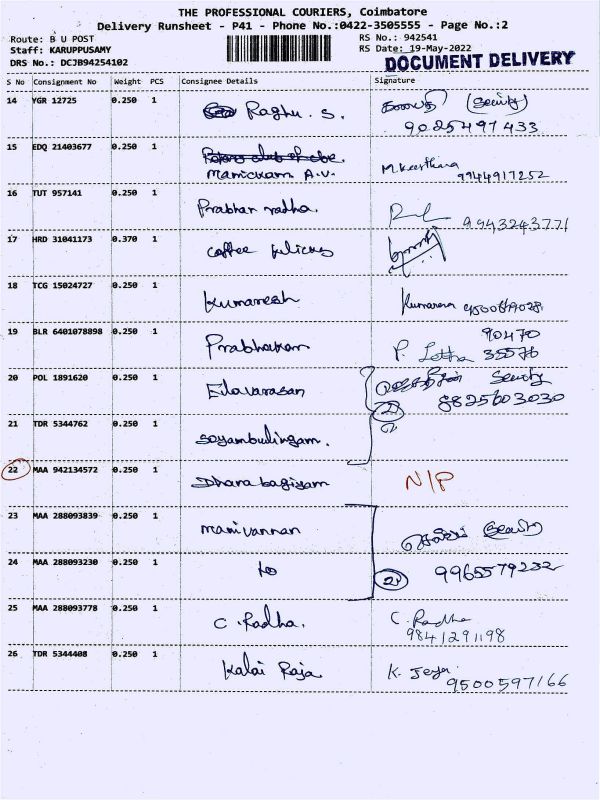 THE PROFESSIONAL COURIERS, Coimbatore
Delivery Runsheet - P41 - Phone No.:0422-3505555 - Page No.:2
Route: B U POST
RS No.: 942541
Staff: KARUPPUSAMY
RS Date: 19-May-2022
DRS No.: DCJB94254102
DOCUMENT DELIVERY
S No Consignment No Weight PCS Consignee Details Signature
14 YGR 12725 0.250 1 Raghu. S.
9025497433
15 EDQ 21403677 0.250 1
Manickam A.V. M.Keerthana 9944917252
16 TUT 957141 0.250 1 Prabhar radha. 9943243771
17 HRD 31041173 0.370 1 coffee
18 TCG 15024727 0.250 1 Kumaresh
19 BLR 6401078898 0.250 1 Prabhakaran 90470
P. Latha 35576
20 POL 1891620 0.250 1 Elavarasan
2 8825603030
21 TDR 5344762 0.250 1 Soyambulingam.
22 MAA 942134572 0.250 1 Dhana bagiyam N/P
23 MAA 288093839 0.250 1 Manivannan
24 MAA 288093230 0.250 1 2 9965579232
25 MAA 288093778 0.250 1 C. Radha. C. Radha
9841291198
26 TDR 5344408 0.250 1 Kalai Raja K. Jeya.
9500597166